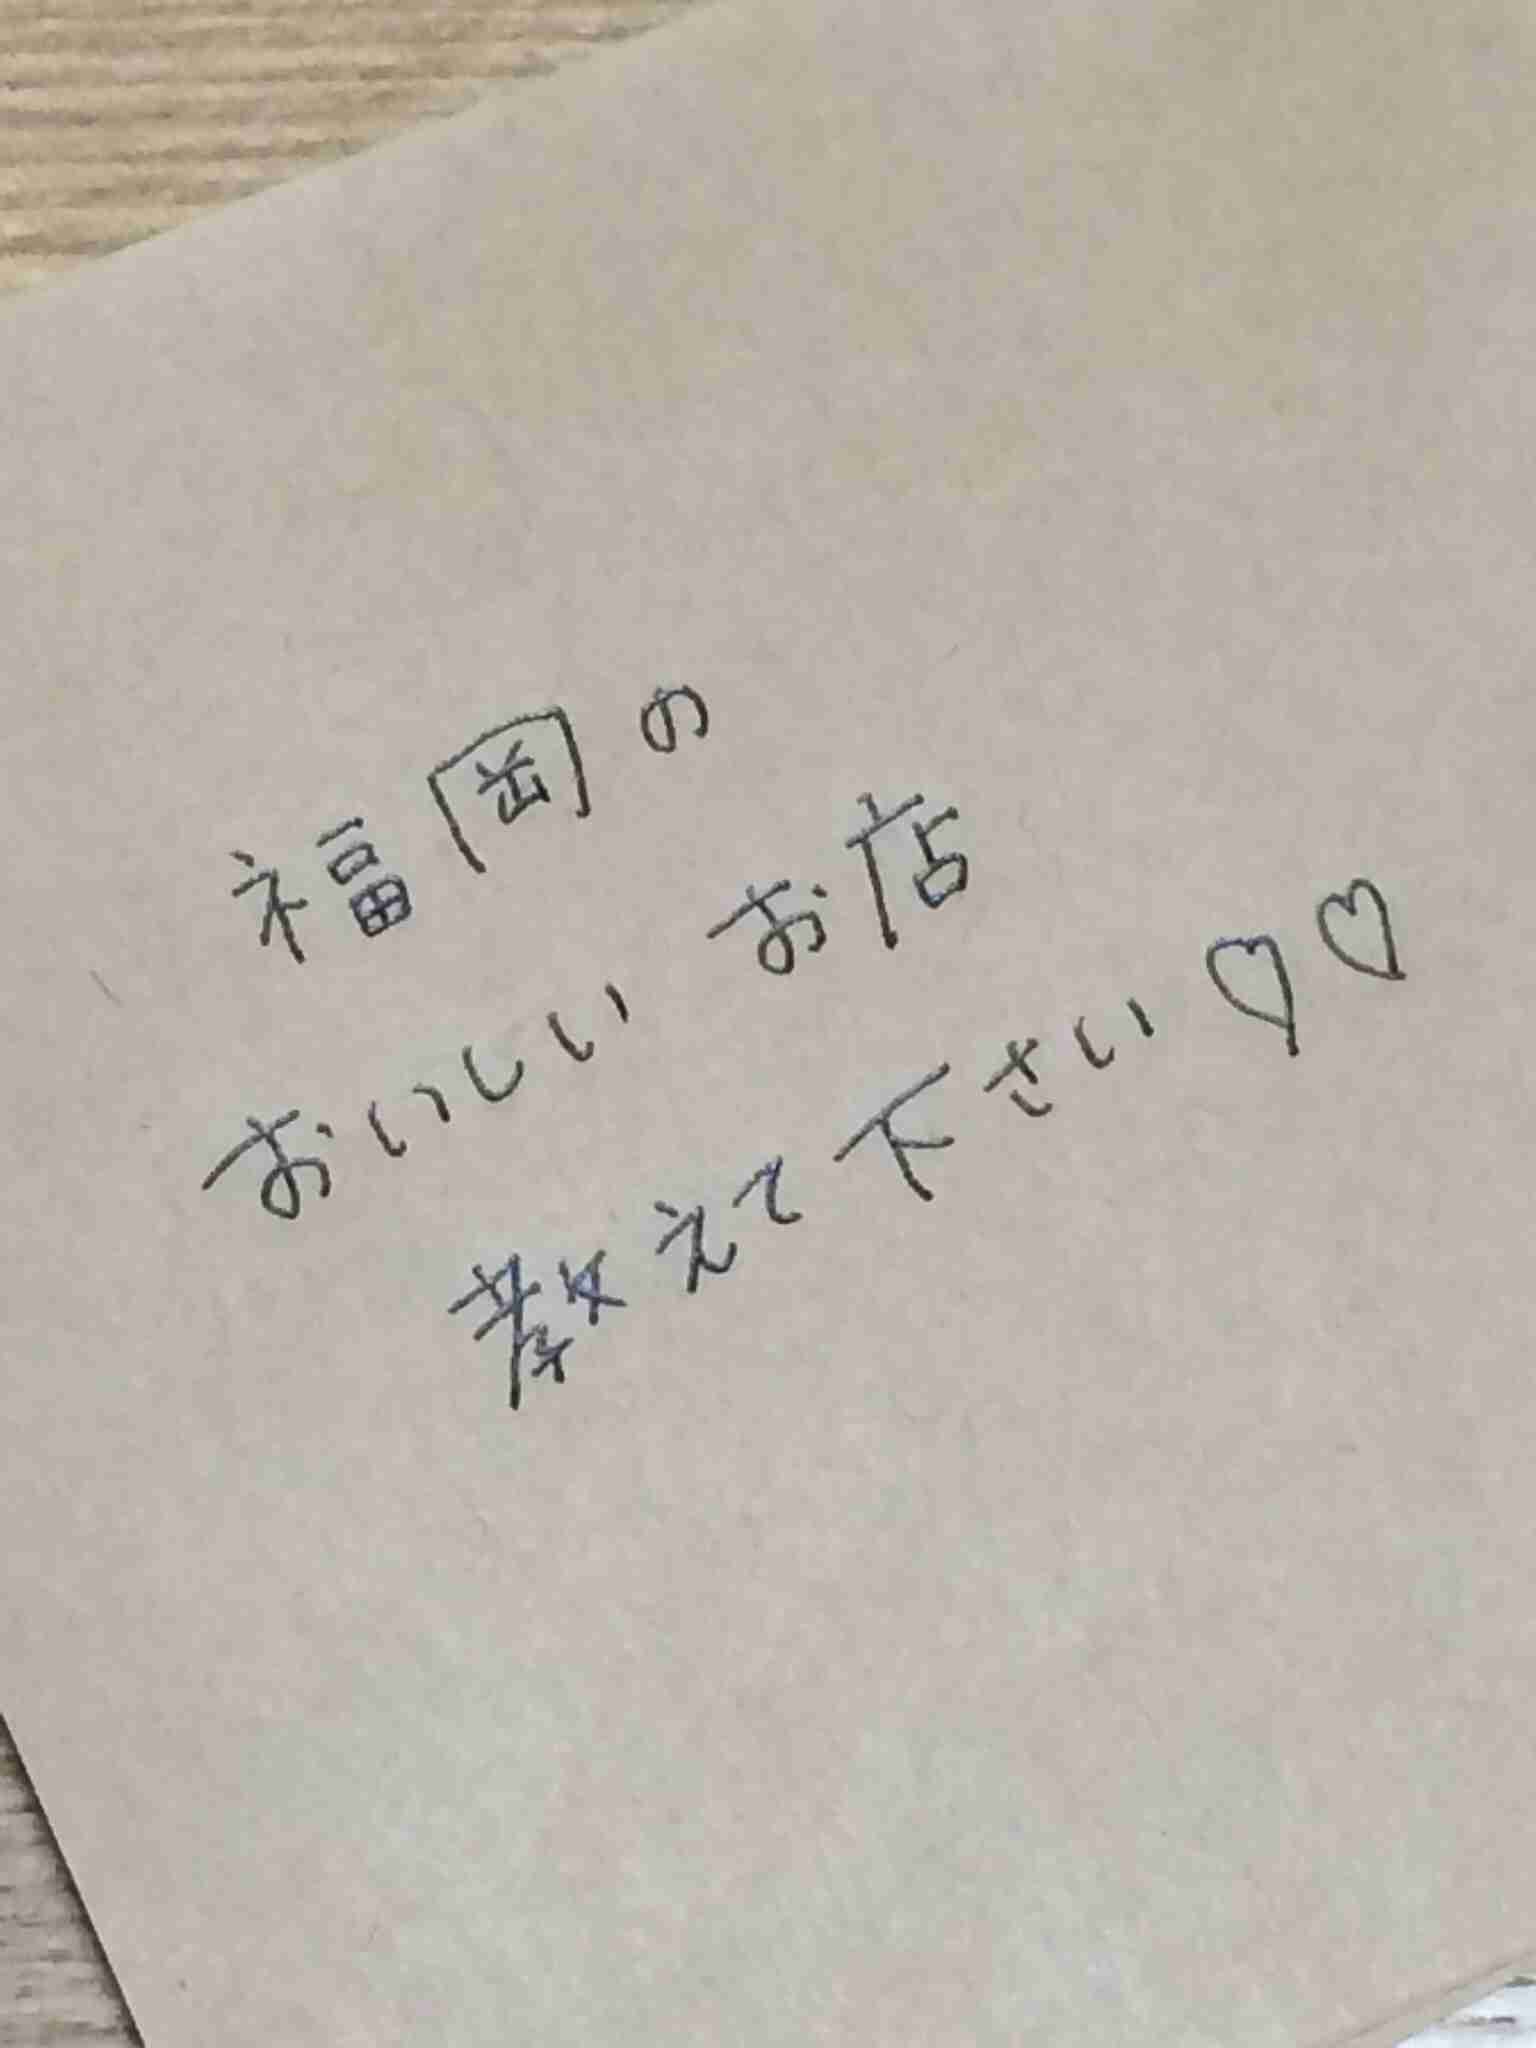 福岡の
おいしいお店
教えて下さい♡♡